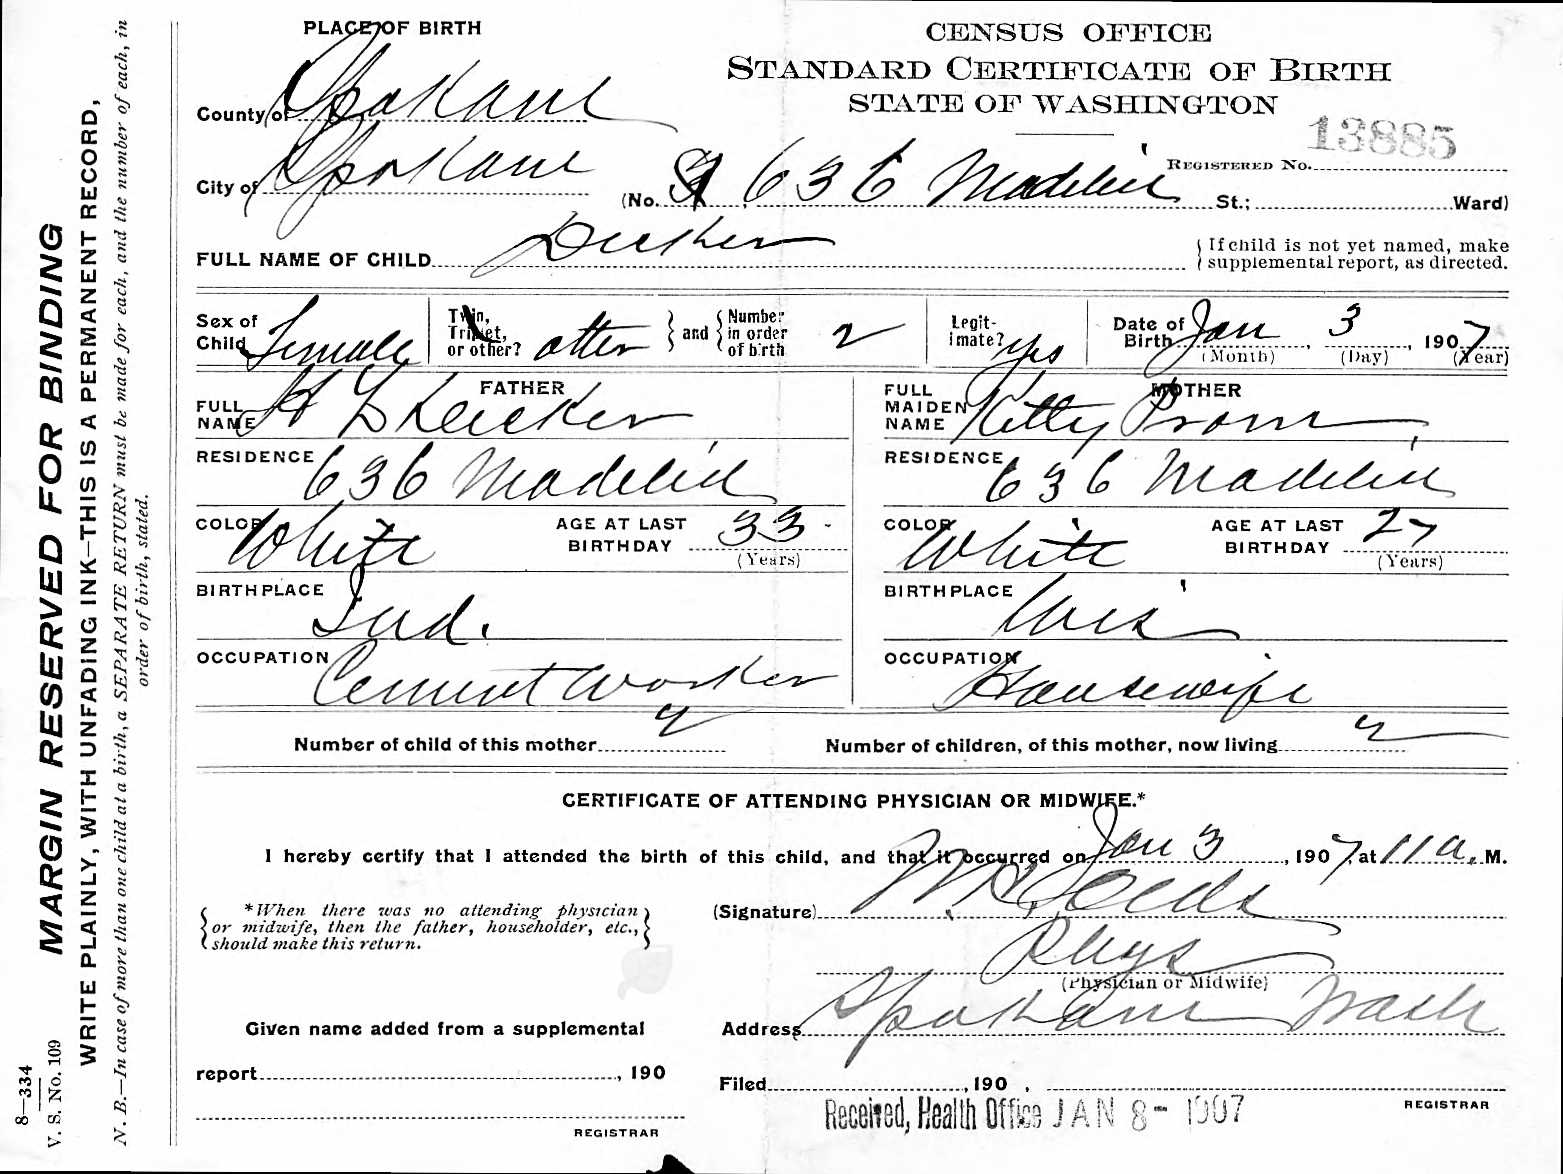 PLACE OF BIRTH
County of Spokane
City of Spokane
CENSUS OFFICE
STANDARD CERTIFICATE OF BIRTH
STATE OF WASHINGTON
REGISTERED No. 13885
(No. 636 St.; Ward)
FULL NAME OF CHILD Decker
{ If child is not yet named, make
supplemental report, as directed.
Sex of Child Female
Twin, Triplet, or other? other } and { Number in order of birth 2
Legitimate? yes
Date of Birth Jan 3, 1907
(Month) (Day) (Year)
FATHER
FULL NAME Decker
RESIDENCE 636
COLOR White AGE AT LAST BIRTHDAY 33
(Years)
BIRTHPLACE Ind.
OCCUPATION Cement Worker
MOTHER
FULL MAIDEN NAME Kitty
RESIDENCE 636
COLOR White AGE AT LAST BIRTHDAY 27
(Years)
BIRTHPLACE Wis
OCCUPATION Housewife
Number of child of this mother 2
Number of children, of this mother, now living 2
CERTIFICATE OF ATTENDING PHYSICIAN OR MIDWIFE.*
I hereby certify that I attended the birth of this child, and that it occurred on Jan 3, 1907, at 11 a. M.
{ *When there was no attending physician }
or midwife, then the father, householder, etc.,
should make this return.
(Signature)
Phys
(Physician or Midwife)
Given name added from a supplemental
report, 190
REGISTRAR
Address Spokane Wash
Filed, 190 ,
REGISTRAR
Received, Health Office JAN 8 - 1907
8—334
V. S. No. 109
MARGIN RESERVED FOR BINDING
WRITE PLAINLY, WITH UNFADING INK—THIS IS A PERMANENT RECORD,
N. B.—In case of more than one child at a birth, a SEPARATE RETURN must be made for each, and the number of each, in
order of birth, stated.